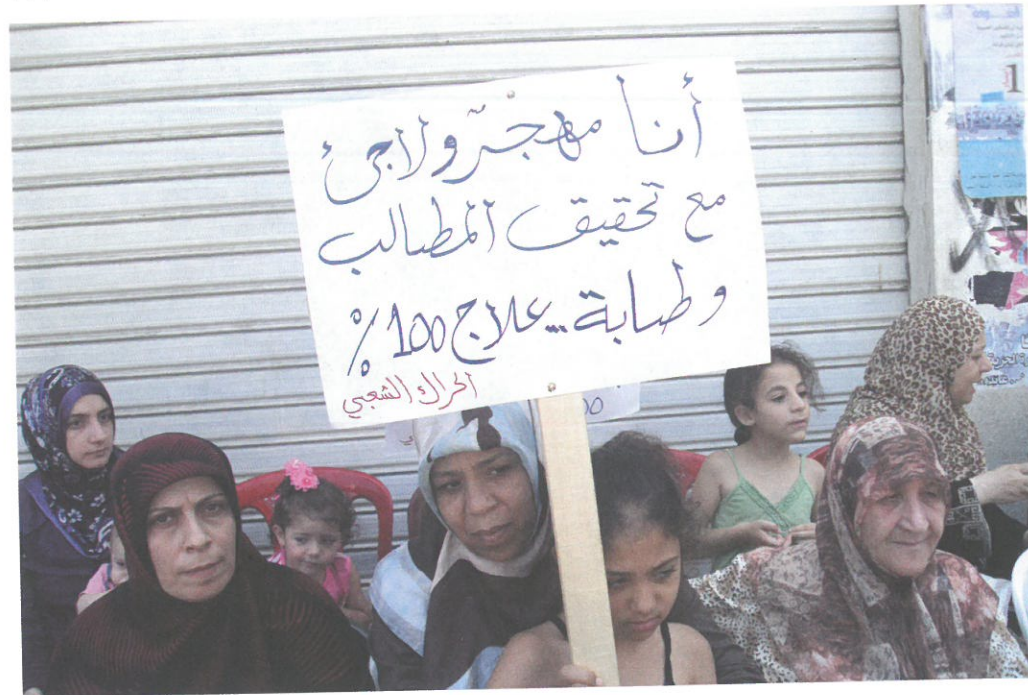 أنا مهجّر ولاجئ
مع تحقيق المطالب
وطبابة... علاج 100%
الحراك الشعبي